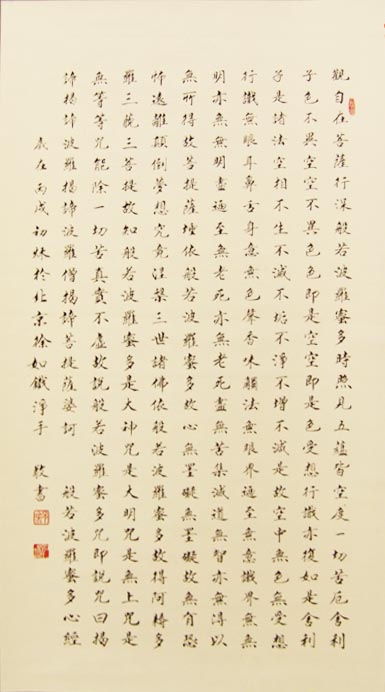 觀自在菩薩行深般若波羅蜜多時照見五蘊皆空度一切苦厄舍利
子色不異空空不異色色即是空空即是色受想行識亦復如是舍利
子是諸法空相不生不滅不垢不淨不增不減是故空中無色無受想
行識無眼耳鼻舌身意無色聲香味觸法無眼界迺至無意識界無無
明亦無無明盡迺至無老死亦無老死盡無苦集滅道無智亦無得以
無所得故菩提薩埵依般若波羅蜜多故心無罣礙無罣礙故無有恐
怖遠離顛倒夢想究竟涅槃三世諸佛依般若波羅蜜多故得阿耨多
羅三藐三菩提故知般若波羅蜜多是大神咒是大明咒是無上咒是
無等等咒能除一切苦真實不虛故說般若波羅蜜多咒即說咒曰揭
諦揭諦波羅揭諦波羅僧揭諦菩提薩婆訶 般若波羅蜜多心經
歲在丙戌初秋於北京徐如鐵淨手 敬書